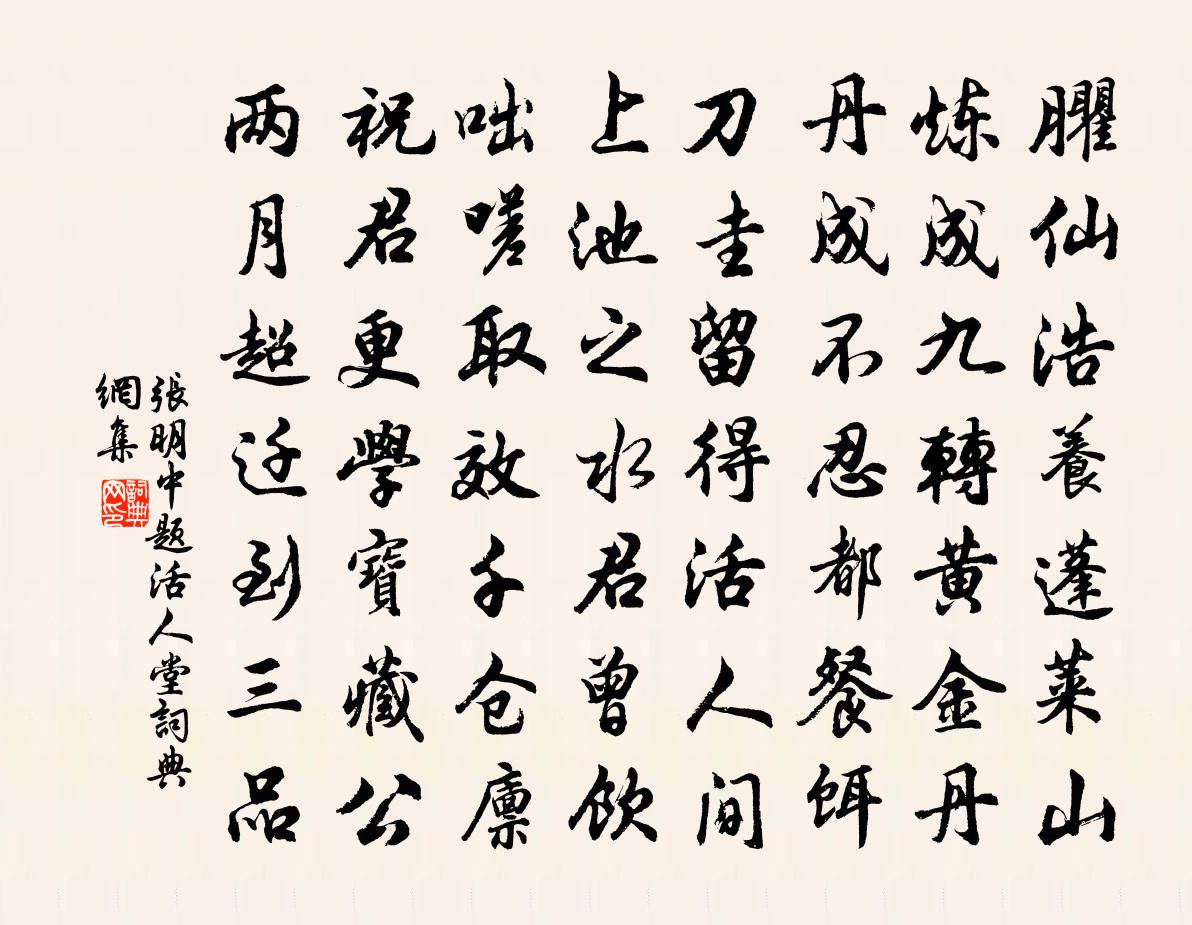 臞仙浩養蓬莱山
炼成九轉黄金丹
丹成不忍都餐餌
刀圭留得活人间
上池之水君曾饮
咄嗟取效千仓廪
祝君更學寶藏公
两月超迁到三品
張明中题活人堂詞典
網集
詞典網印